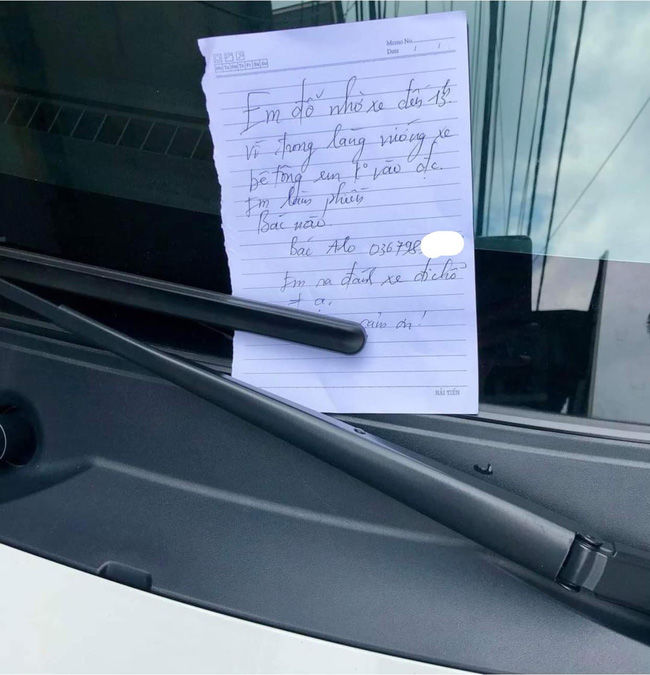 Memo No.
Date / /
Mo Tu We Th Fr Sa Su
Em đỗ nhờ xe đến 13h.
Vì trong làng vướng xe
bê tông em ko vào đc.
Em làm phiền
Bác nào
Bác Alo 036798
Em ra đánh xe đi chỗ
≠ ạ.
cảm ơn!
HẢI TIẾN